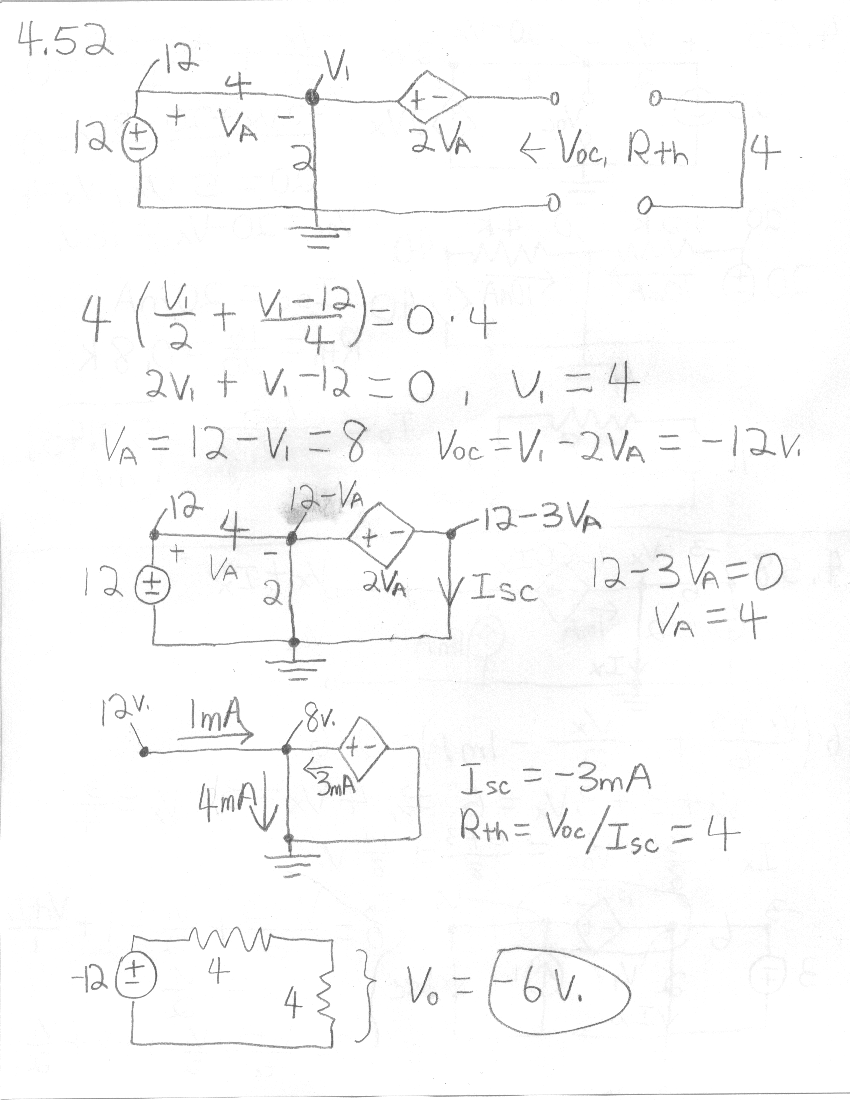 4.52
12
4
V₁
12
+ VA -
2
+ -
2VA
← Voc, Rth
4
4 (V₁/2 + (V₁-12)/4) = 0 · 4
2V₁ + V₁ - 12 = 0 , V₁ = 4
VA = 12 - V₁ = 8 Voc = V₁ - 2VA = -12v.
12
4
12-VA
12-3VA
+ VA -
+ -
12
2
2VA
Isc
12-3VA = 0
VA = 4
12v.
1mA
8v.
+ -
4mA
3mA
Isc = -3mA
Rth = Voc/Isc = 4
-12
4
4
Vo = -6 V.